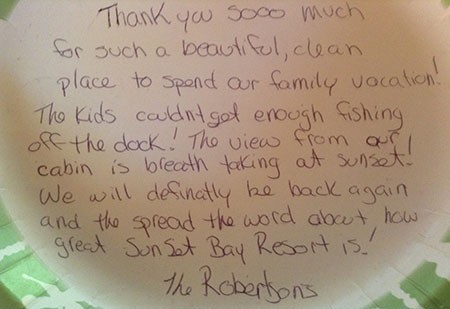 Thank you sooo much
for such a beautiful, clean
place to spend our family vacation!
The kids couldnt get enough fishing
off the dock! The view from our
cabin is breath taking at sunset!
We will definatly be back again
and the spread the word about, how
great SunSet Bay Resort is!
The Robertsons